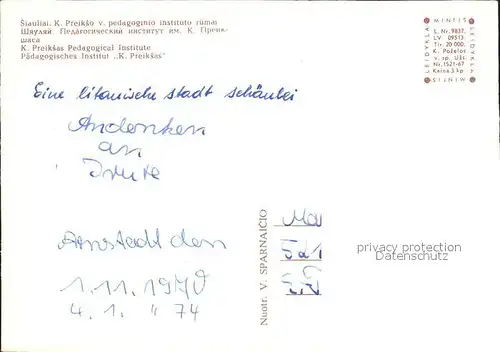 Šiauliai. K. Preikšo v. pedagoginio instituto rūmai
Шяуляй. Педагогический институт им. К. Преик-
шаса
K. Preikšas Pedagogical Institute
Pädagogisches Institut „K. Preikšas"
LEIDYKLA MINTIS LEIDYKLA MINTIS
S. Nr. 9837.
LV 09513
Tir. 20 000.
K. Poželos
v. sp. Užs.
Nr. 1521-67
Kaina 3 kp
Eine litauische stadt schaulei
Andenken
an
Irute
Arnstadt den
1.11.1970
4.1. " 74
Nuotr. V. SPARNAIČIO
privacy protection
Datenschutz